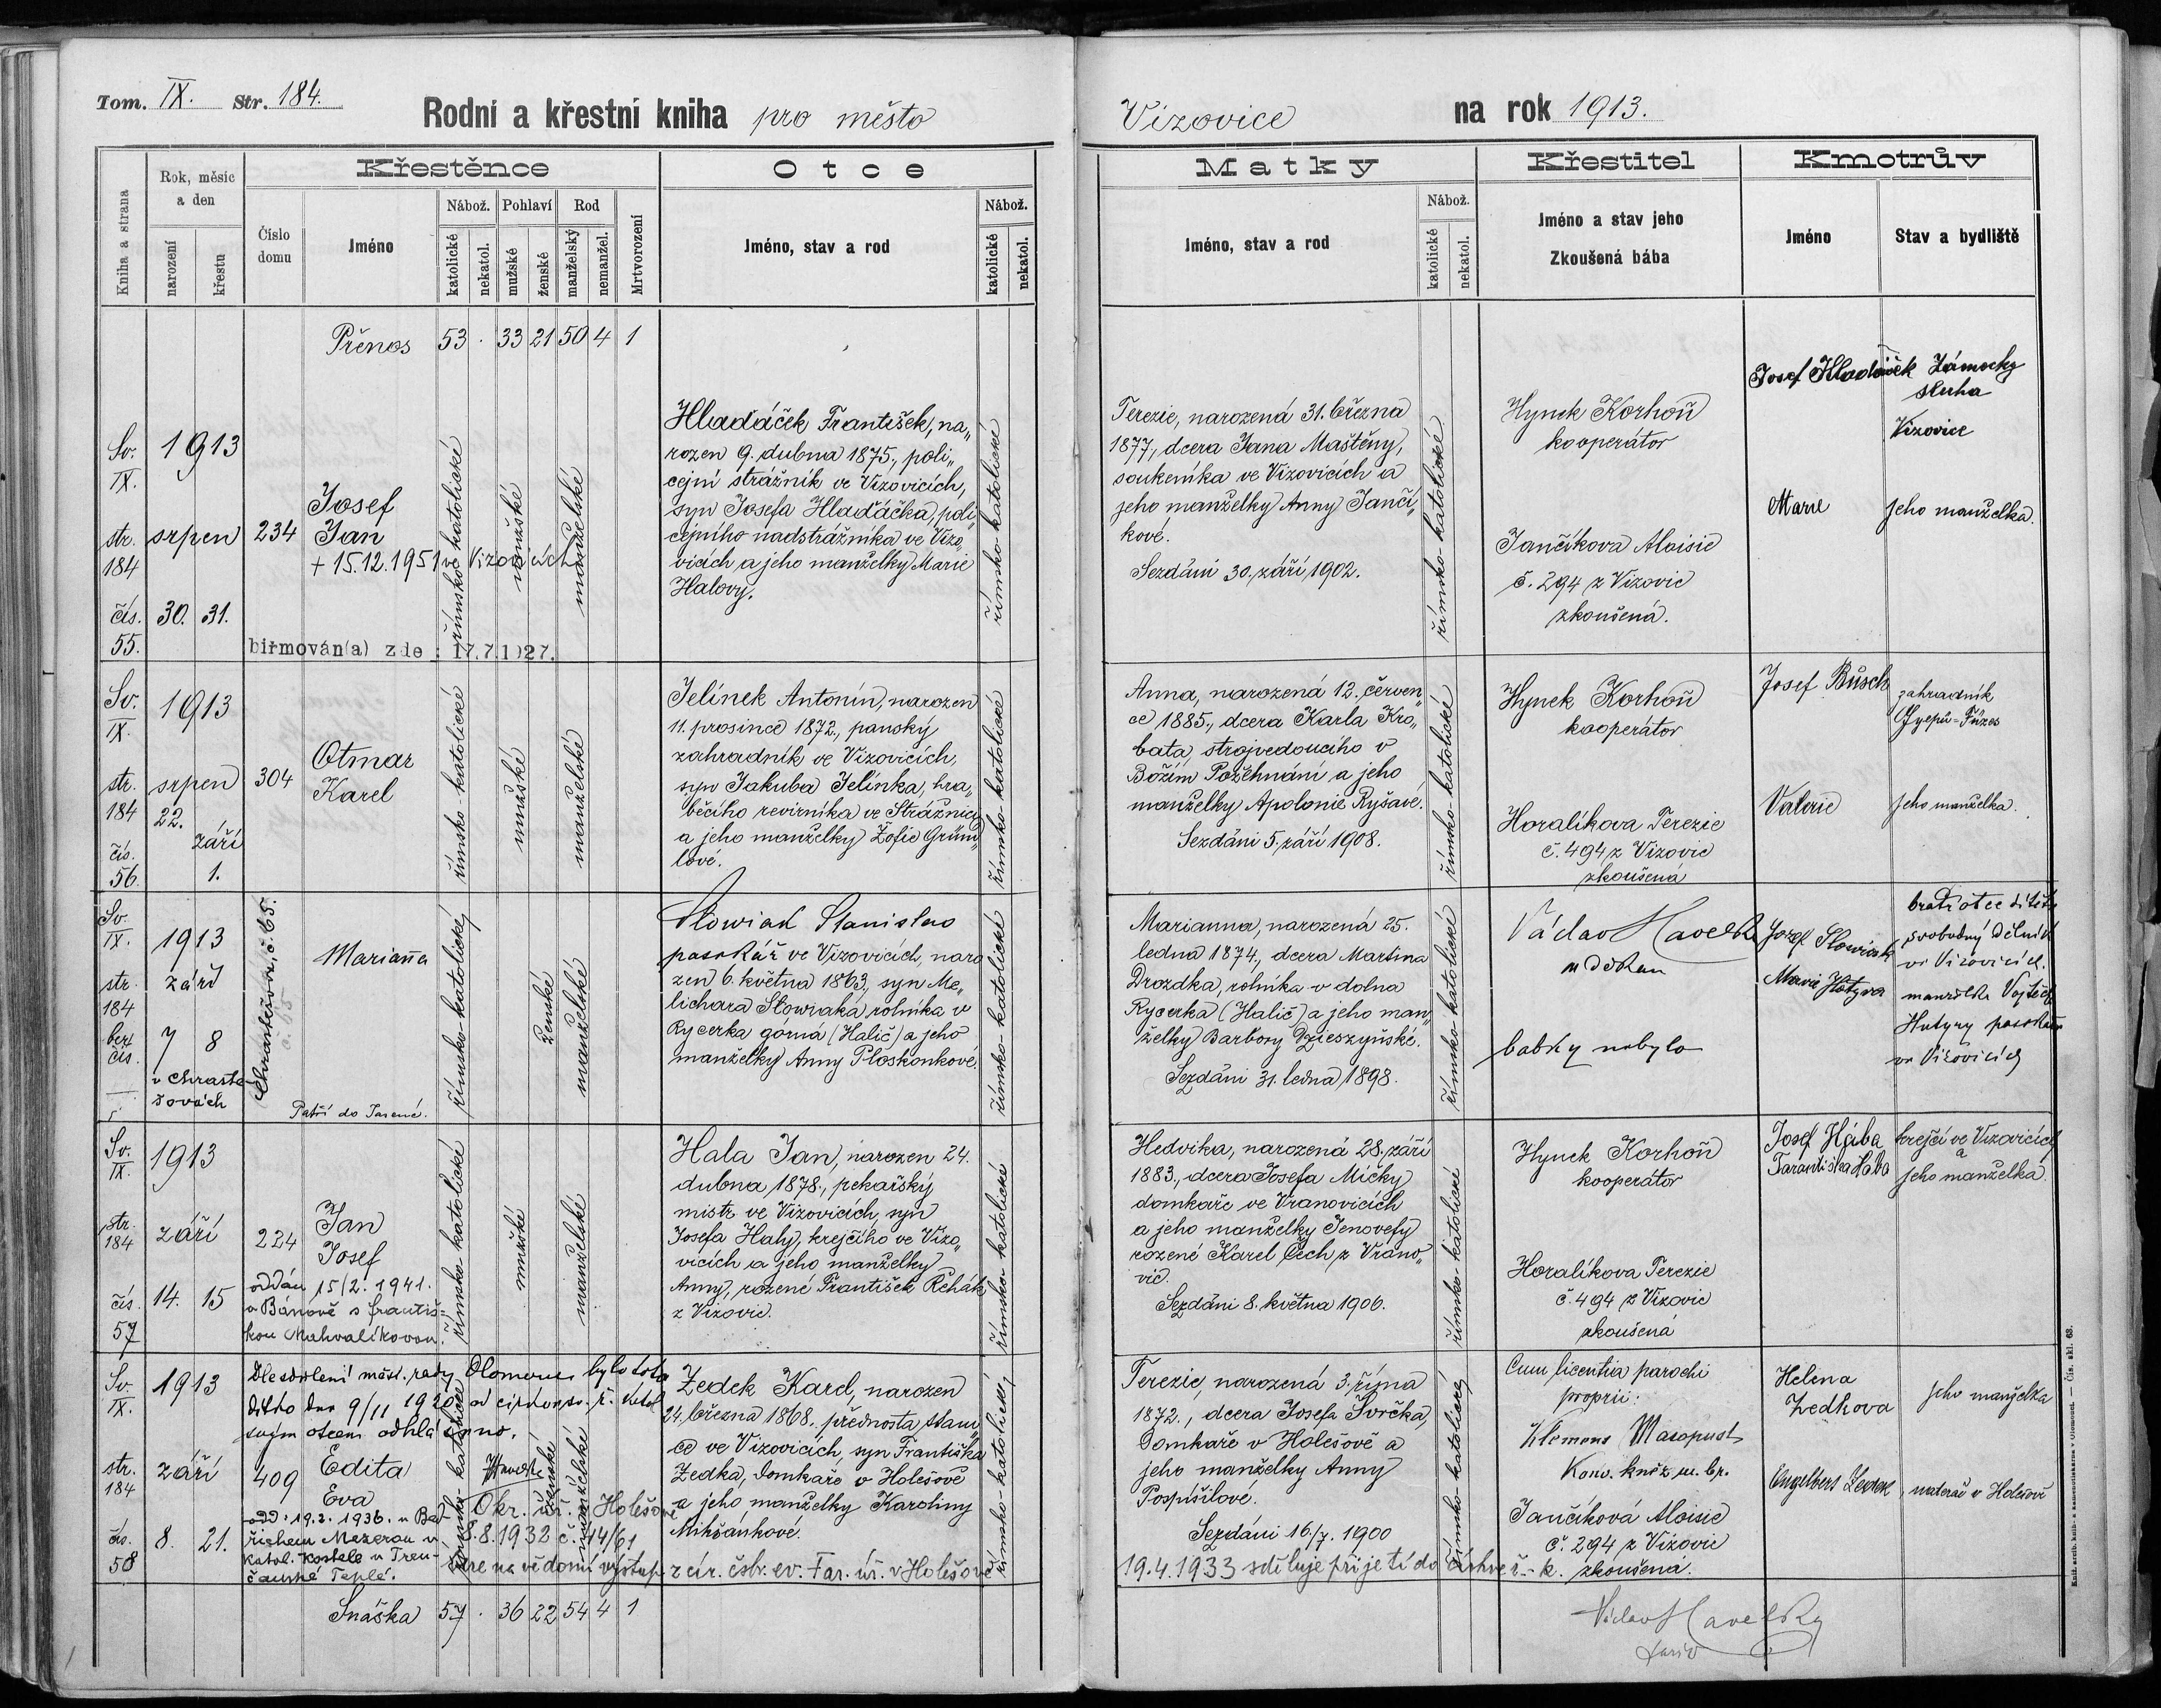 Tom. IX. Str. 184.
Rodní a křestní kniha pro město
Vizovice na rok 1913.
Kniha a strana
Rok, měsíc a den
narození
křestu
Křestěnce
Číslo domu
Jméno
Nábož.
katolické
nekatol.
Pohlaví
mužské
ženské
Rod
manželský
nemanžel.
Mrtvorození
Otce
Jméno, stav a rod
Nábož.
katolické
nekatol.
Matky
Jméno, stav a rod
Nábož.
katolické
nekatol.
Křestitel
Jméno a stav jeho
Zkoušená bába
Kmotrův
Jméno
Stav a bydliště
Přenos 53 . 33 21 50 4 1
Sv.
IX.
str.
184
čís.
55.
1913
srpen
30. 31.
234
Josef
Jan
+ 15.12.1951 v Vizovicích
biřmován(a) zde : 17.7.1927.
římsko-katolické
mužské
manželské
Hlaďáček František, na„
rozen 9. dubna 1875., poli„
cejní strážník ve Vizovicích,
syn Josefa Hlaďáčka, poli„
cejního nadstrážníka ve Vizo„
vicích a jeho manželky Marie
Halovy.
římsko-katolické
Terezie, narozená 31. března
1877, dcera Jana Maštěny,
soukeníka ve Vizovicích a
jeho manželky Anny Jančí„
kové.
Sezdáni 30. září 1902.
římsko-katolické
Hynek Korhoň
kooperátor
Jančíkova Aloisie
č. 294 z Vizovic
zkoušená.
Josef Hladáček Zámecký
sluha
Vizovice
Marie jeho manželka.
Sv.
IX.
str.
184
čís.
56.
1913
srpen
22.
září
1.
304
Otmar
Karel
římsko-katolické
mužské
manželské
Jelínek Antonín, narozen
11. prosince 1872., panský
zahradník ve Vizovicích,
syn Jakuba Jelínka, hra„
běcího revírníka ve Strážnici
a jeho manželky Žofie Gründ„
lové.
římsko-katolické
Anna, narozená 12. červen„
ce 1885., dcera Karla Kro„
bata, strojvedoucího v
Božím Požehnání a jeho
manželky Apolonie Ryšavé.
Sezdáni 5. září 1908.
římsko-katolické
Hynek Korhoň
kooperátor
Horalíkova Terezie
č. 494 z Vizovic
zkoušená
Josef Büsch zahradník
Gyepü-Füzes
Valerie jeho manželka.
Sv.
IX.
str.
184
bez
čís.
1913
září
7 8
v Chraste-
šovách
Chrastěšova, č. 65.
Marianna
Patří do Jasené.
římsko-katolický
ženské
manželské
Slowiak Stanislav
pasekář ve Vizovicích, naro
zen 6. května 1863., syn Me„
lichara Słowiaka, rolníka v
Rycerka gorna (Halič) a jeho
manželky Anny Płoskonkové.
římsko-katolické
Marianna, narozená 25.
ledna 1874., dcera Martina
Drozdka, rolníka v dolna
Rycerka (Halič) a jeho man„
želky Barbory Dzieszyńské.
Sezdáni 31. ledna 1898.
římsko-katolické
Václav Havelka
babky nebylo
Jozef Slowiak
Marie Hutyra
bratr otce dítěte
svobodný dělník
ve Vizovicích.
manželka Vojtěch
Hutyry pasekáře
ve Vizovicích
Sv.
IX.
str.
184
čís.
57
1913
září
14. 15
224
Jan
Josef
oddán 15/2. 1941.
v Bánově s františ-
kou Mahvalíkovou.
římsko-katolické
mužské
manželské
Hala Jan, narozen 24.
dubna 1878., pekařský
mistr ve Vizovicích, syn
Josefa Haly, krejčího ve Vizo„
vicích a jeho manželky
Anny, rozené František Řehák
z Vizovic.
římsko-katolické
Hedvika, narozená 28. září
1883., dcera Josefa Mičky
domkaře ve Vranovicích
a jeho manželky Jenovefy
rozené Karel Čech z Vrano„
vic.
Sezdáni 8. května 1906.
římsko-katolické
Hynek Korhoň
kooperátor
Horalíkova Terezie
č. 494 z Vizovic
zkoušená
Josef Hába krejčí ve Vizovicích
a
Hába jeho manželka.
Sv.
IX.
str.
184
čís.
58
1913
září
8. 21.
409
Dle sdělení měst. rady Olomouc bylo toto
dítko dne 9/11 1920 od církve ř. katol
svým otcem odhlášeno.
Edita
Eva
odd: 19.2. 1936. u Bed-
řichem Mezerou v
katol. kostele v Tren-
čanské Teplé.
Okr. úř. Holešově
8.8.1932 č. 44/61
bere na vědomí výstup z cír. čsbr. ev. Far. úř. v Holešově
19.4.1933 sděluje přijetí do církve ř.-k.
římsko-katolické
ženské
manželské
Zedek Karel, narozen
24. března 1868., přednosta stani„
ce ve Vizovicích, syn Františka
Zedka, domkaře v Holešově
a jeho manželky Karoliny
Mikšánkové.
římsko-katolický
Terezie, narozená 3. října
1872., dcera Josefa Svrčka,
domkaře v Holešově a
jeho manželky Anny
Pospíšilové.
Sezdáni 16./7. 1900
římsko-katolický
Cum licentia parochi
proprii:
Klemens Masopust
Konv. kněz m. br.
Jančíková Aloisie
č. 294 z Vizovic
zkoušená.
Helena
Zedkova jeho manželka
Engelbert Zedek v Holešově
Snáška 57 . 36 22 54 4 1
Václav Havelka
farář